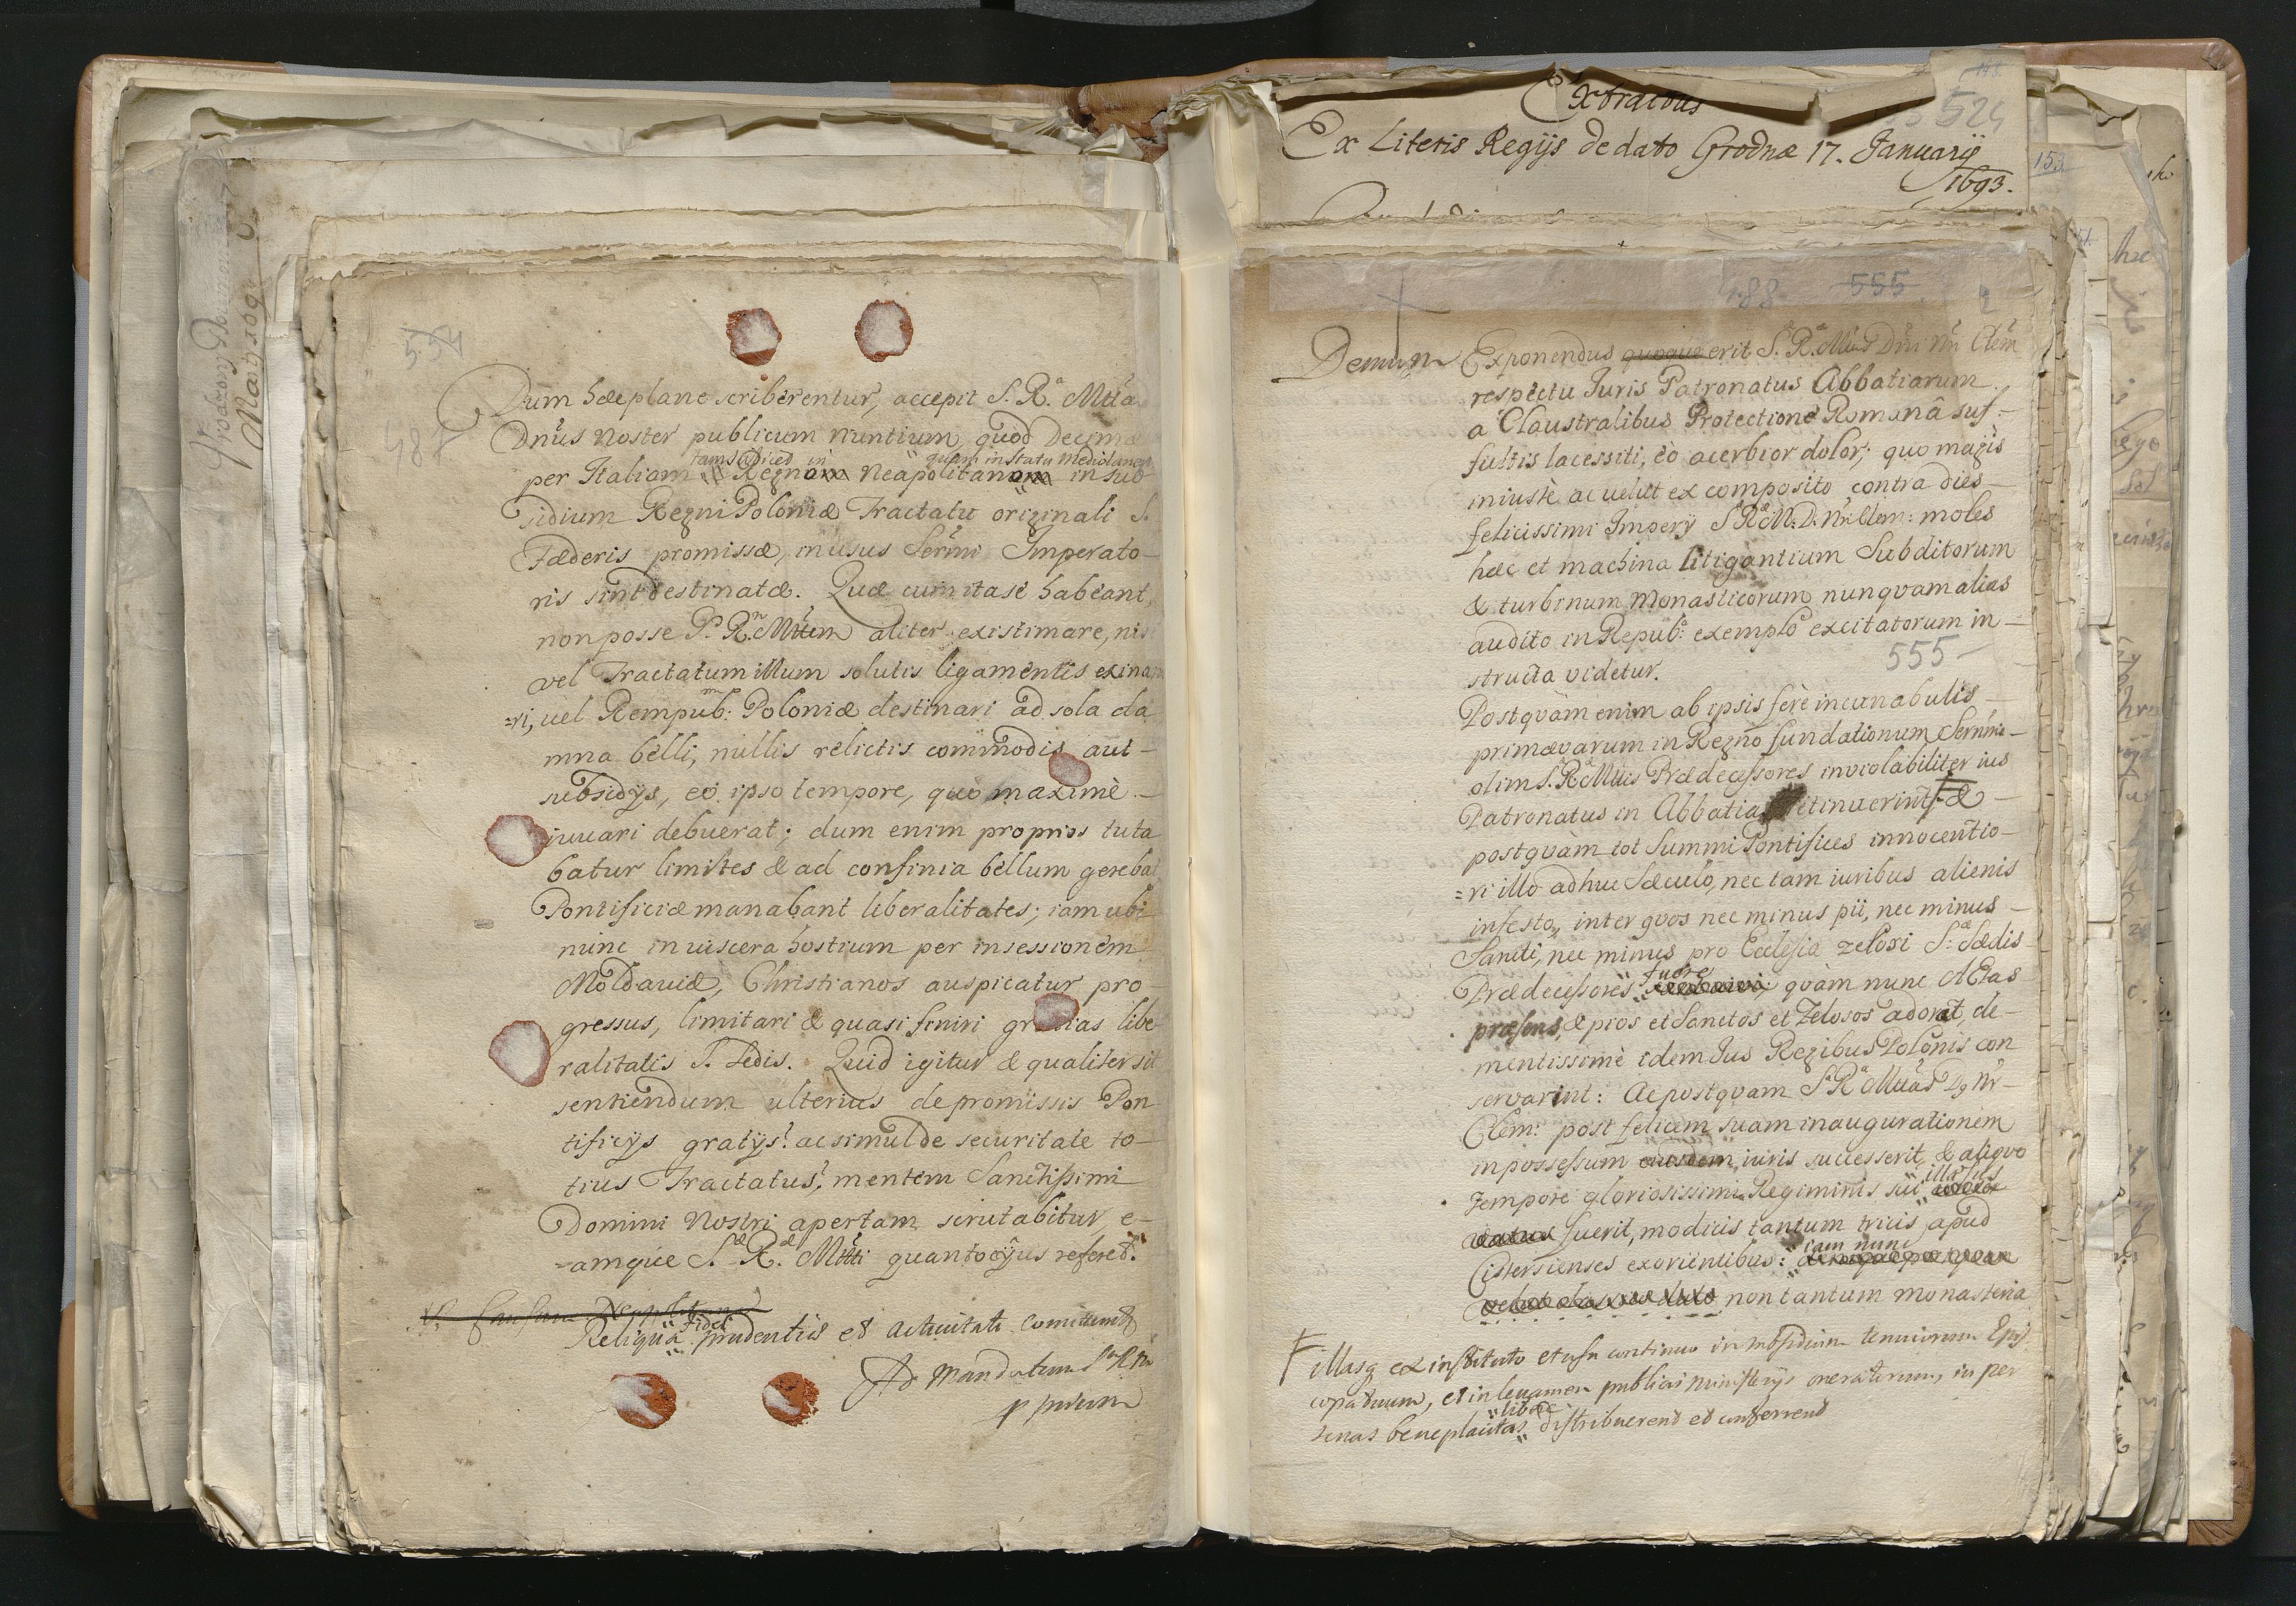 552
487
Dum hæc plane scriberentur, accepit S. Rᵃ. Mtta
Dnus Noster publicum nuntium, quod Decimæ
tam in quam in statu Mediolanen
per Italiam Regno Neapolitano in sub
sidium Regni Poloniæ Tractatu originali S.
Fæderis promissæ, in usus Sermi Imperato-
ris sint destinatæ. Quæ cum ita se habeant,
non posse S. R. Mttem aliter existimare, nisi
vel Tractatum illum solutis ligamentis exina
=ri, uel Rempub: Poloniæ destinari ad sola da
mna belli, nullis relictis commodis aut-
subsidÿs, eo ipso tempore, quo maximè-
iuuari debuerat; dum enim proprios tuta
batur limites & ad confinia bellum gereba
Pontificiæ manabant liberalitates; iam ubi
nunc in uiscera hostium per insessionem
Moldaviæ, Christianos auspicatur pro-
gressus, limitari & quasi finiri gratias libe-
ralitatis S. Sedis. Quid igitur & qualiter sit
sentiendum ulterius de promissis Pon
tificÿs gratÿs? ac simul de securitate to-
tius Tractatus? mentem Sanctissimi
Domini Nostri apertam scrutabitur, e-
=amque S. R. Mtti quantocÿus referet.
Reliqua Fidei prudentiæ et activitati committendo
Ad Mandatum
p primum
Extractus
524
Ex Literis Regijs de dato Grodnæ 17. Januarij
1693.
153
488 555 2
Demum Exponendus quoque erit S. R. Mttas Dni Nri Clem
respectu Iuris Patronatus Abbatiarum
a Claustralibus Protectione Romanâ suf-
fultis lacessiti, eò acerbior dolor; quo magis
iniustè ac uelut ex composito contra dies-
felicissimi Imperij S. R. M. D. Nri Clem: moles
hæc et machina litigantium Subditorum
& turbinum Monasticorum nunquam alias
audito in Repub: exemplo excitatorum in-
structa videtur. 555-
Postquam enim ab ipsis ferè incunabulis
primævarum in Regno fundationum Sernmi-
olim S. R. Mttis Prædecessores inviolabiliter ius
Patronatus in Abbatias retinuerint, &-
postquàm tot Summi Pontifices innocentio-
=ri illo adhuc Sæculo, nec tam iuribus alienis
infesto, inter quos nec minus pii, nec minus-
Sancti, nec minus pro Ecclesia zelosi S. Sædis
fuere
Prædecessores quàm nunc Ætas
præsens, & pios et Sanctos et Zelosos adorat, cle-
mentissimè idem Ius Regibus Polonis con
servarint: Ac postquam S. R. Mttas D. Nr-
Clem: post felicem suam inaugurationem
in possessum eiusdem iuris successerit, & aliquo
illæsus
tempore gloriosissimi Regiminis sui
fuerit, modicis tantum tricis apud
iam nunc
Cistersienses exorientibus:
non tantum monasteria
illasq ex instituto et usu continuo in subsidium tenuiorum Epis
copatuum, et in leuamen publicis ministerijs oneratorum, in per
libere
sonas beneplacitas distribuerent et conferrent